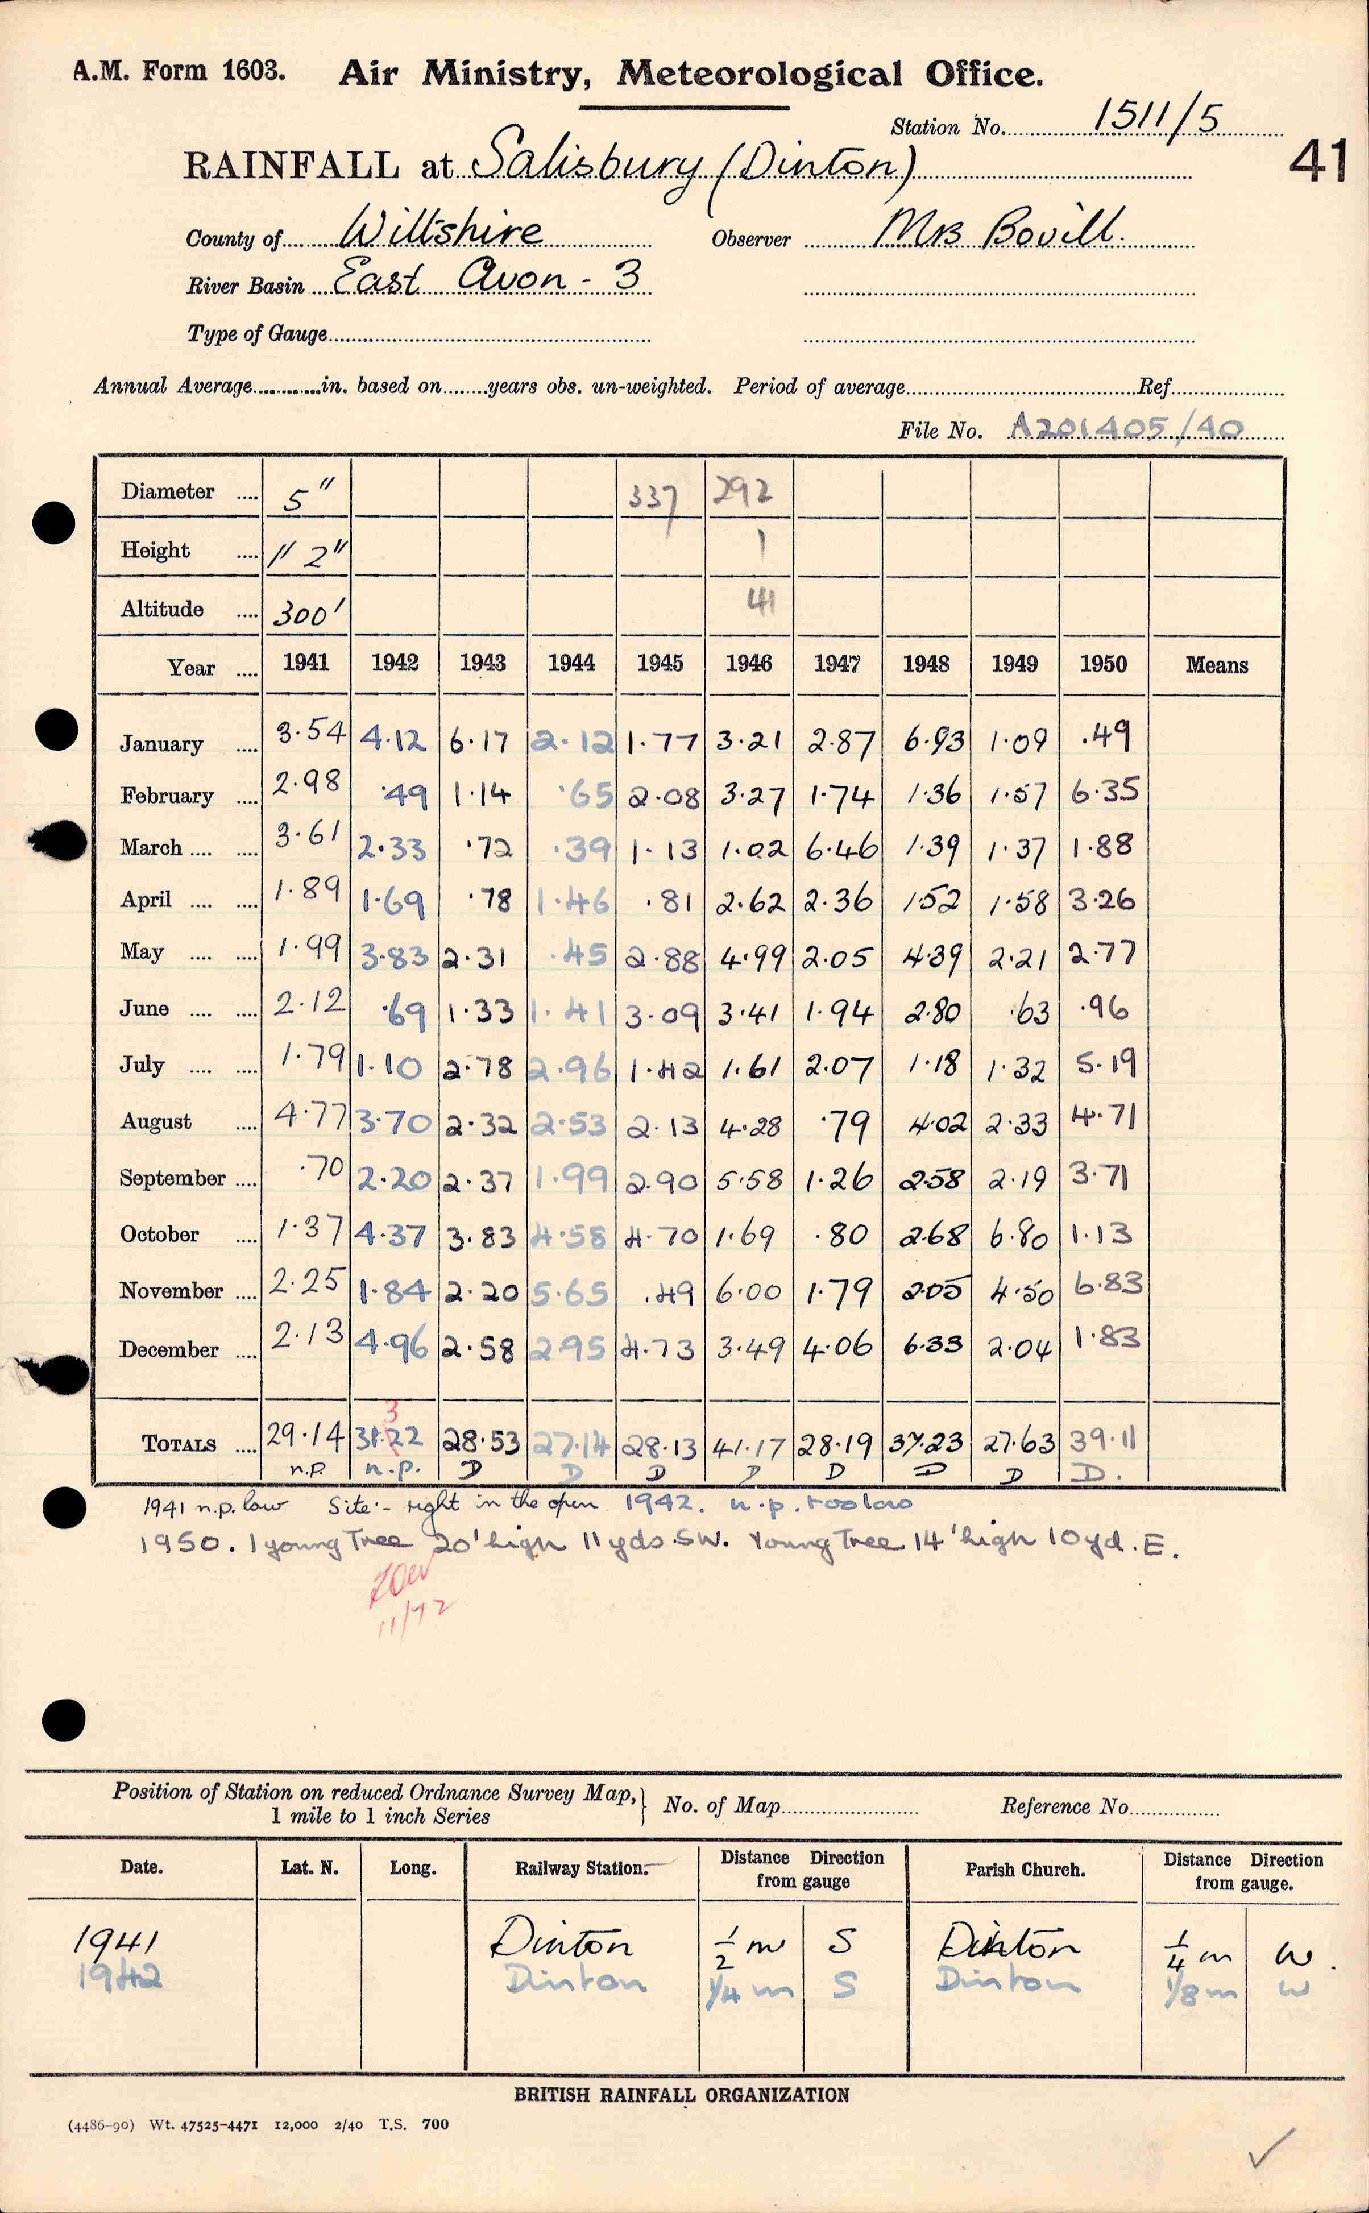 A.M. Form 1603. Air Ministry, Meteorological Office.
Station No. 1511/5
41
RAINFALL at Salisbury (Dinton)
County of Wiltshire Observer Mrs Bovill.
River Basin East Avon - 3
Type of Gauge
Annual Average in. based on years obs. un-weighted. Period of average Ref.
File No. A201405/40
Diameter .... 5" 337 292
Height .... 1' 2" 1
Altitude .... 300' 41
Year .... 1941 1942 1943 1944 1945 1946 1947 1948 1949 1950 Means
January .... 3.54 4.12 6.17 2.12 1.77 3.21 2.87 6.93 1.09 .49
February .... 2.98 .49 1.14 .65 2.08 3.27 1.74 1.36 1.57 6.35
March .... .... 3.61 2.33 .72 .39 1.13 1.02 6.46 1.39 1.37 1.88
April .... .... 1.89 1.69 .78 1.46 .81 2.62 2.36 1.52 1.58 3.26
May .... .... 1.99 3.83 2.31 .45 2.88 4.99 2.05 4.39 2.21 2.77
June .... .... 2.12 .69 1.33 1.41 3.09 3.41 1.94 2.80 .63 .96
July .... .... 1.79 1.10 2.78 2.96 1.42 1.61 2.07 1.18 1.32 5.19
August .... 4.77 3.70 2.32 2.53 2.13 4.28 .79 4.02 2.33 4.71
September .... .70 2.20 2.37 1.99 2.90 5.58 1.26 2.58 2.19 3.71
October .... 1.37 4.37 3.83 4.58 4.70 1.69 .80 2.68 6.80 1.13
November .... 2.25 1.84 2.20 5.65 .49 6.00 1.79 2.05 4.50 6.83
December .... 2.13 4.96 2.58 2.95 4.73 3.49 4.06 6.33 2.04 1.83
3
TOTALS .... 29.14 31.22 28.53 27.14 28.13 41.17 28.19 37.23 27.63 39.11
n.p. n.p. D D D D D D D D.
1941 n.p. low Site:- right in the open 1942. n.p. too low
1950. 1 young Tree 20' high 11 yds. SW. Young Tree 14' high 10 yd. E.
11/72
Position of Station on reduced Ordnance Survey Map, } No. of Map Reference No.
1 mile to 1 inch Series
Date. Lat. N. Long. Railway Station. Distance Direction from gauge Parish Church. Distance Direction from gauge.
1941 Dinton 1/2 m S Dinton 1/4 m W.
1942 Dinton 1/4 m S Dinton 1/8 m W
BRITISH RAINFALL ORGANIZATION
(4486-90) Wt. 47525-4471 12,000 2/40 T.S. 700